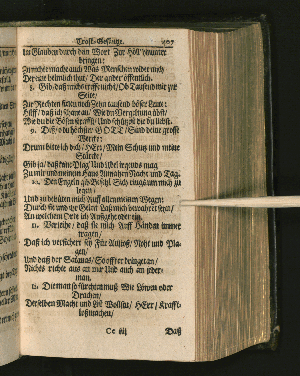 Trost-Gesänge.
im Glauben durch dein Wort Zur Höll hinunter
bringen:
Zunichte mache auch Was Menschen wider mich
Der eine heimlich thut/ Der ander öffentlich.
8. Gib/ daß mirs treffe nicht/ Ob Tausend mir zur
Seite/
Zur Rechten fielen noch Zehn tausend böse Leute:
Hilff/ daß ich schaue an/ Wie du Vergeltung übst/
Wie du die Bösen straffst/ Und schützest die du liebst.
9. Daß/ o du höchster GOTT/ Sind deine grosse
Wercke:
Drum bitte ich dich/ HErr/ Mein Schutz und meine
Stärcke/
Gib ja/ daß keine Plag Und Übel irgends mag
Zu mir und meinem Haus Annahen Nacht und Tag.
10. Den Engeln gib Befehl Sich rings um mich zu
legen:
Und zu behüten mich Auff allen meinen Wegen:
Durch sie und ihr Geleit Laß mich bewahret seyn/
An welchem Orte ich Ausgehe oder ein.
11. Verleihe/ daß sie mich Auff Händen immer
tragen/
Daß ich versichert sey Für Anstoß/ Noht und Plagen/
Und daß der Satanas/
Nichts richte aus an mir Und auch an jederman.
12. Die man so fürchten muß Wie Löwen oder
Drachen/
Derselben Macht und List Wollst/ HErr/ Krafftloß machen/
Cc iiij
Daß